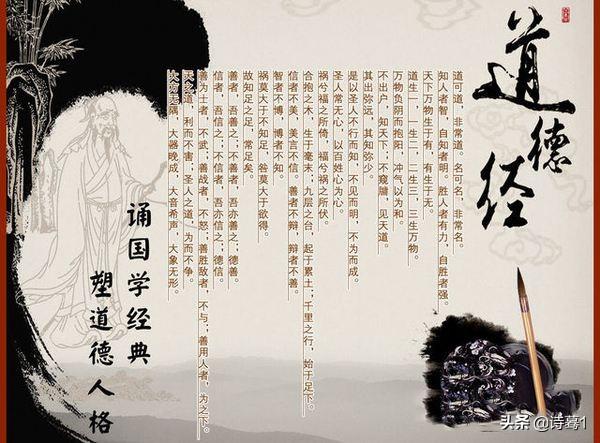 道德经
道可道，非常道。名可名，非常名。
知人者智，自知者明。胜人者有力，自胜者强。
天下万物生于有，有生于无。
道生一，一生二，二生三，三生万物。
万物负阴而抱阳，冲气以为和。
不出户，知天下；不窥牖，见天道。
其出弥远，其知弥少。
是以圣人不行而知，不见而明，不为而成。
圣人常无心，以百姓心为心。
祸兮福之所倚，福兮祸之所伏。
合抱之木，生于毫末；九层之台，起于累土；千里之行，始于足下。
信者不美，美言不信。善者不辩，辩者不善。
智者不博，博者不知。
祸莫大于不知足，咎莫大于欲得。
故知足之足，常足矣。
善者，吾善之；不善者，吾亦善之；德善。
信者，吾信之；不信者，吾亦信之；德信。
善为士者，不武；善战者，不怒；善胜敌者，不与；善用人者，为之下。
天之道，利而不害；圣人之道，为而不争。
大方无隅，大器晚成，大音希声，大象无形。
诵国学经典
塑道德人格
头条@诗蓦1